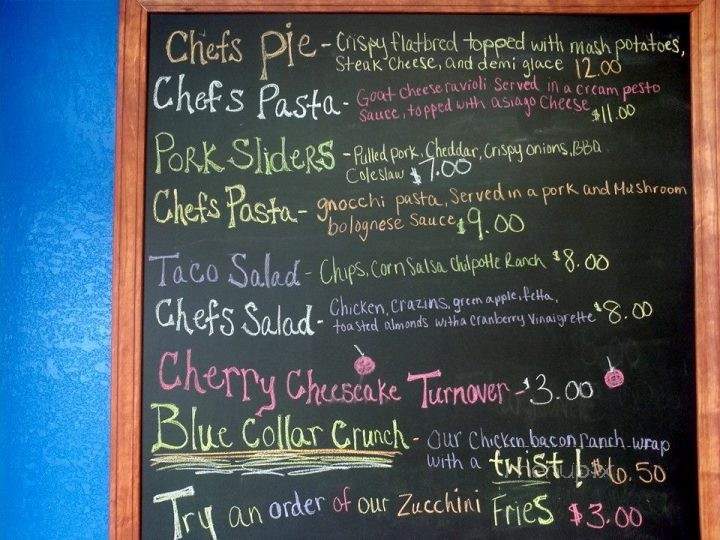 Chefs Pie - Crispy flatbred topped with mash potatoes,
Steak cheese, and demi glace 12.00
Chefs Pasta - Goat cheese ravioli Served in a cream pesto
Sauce, topped with asiago Cheese $11.00
Pork Sliders - Pulled pork, Cheddar, Crispy onions, BBQ
Coleslaw $7.00
Chefs Pasta - gnocchi pasta, Served in a pork and Mushroom
bolognese Sauce $9.00
Taco Salad - Chips, Corn Salsa Chilpotle Ranch $8.00
Chefs Salad - Chicken, Crazins, green apple, fetta,
toasted almonds with a Cranberry Vinaigrette $8.00
Cherry Cheesecake Turnover - $3.00
Blue Collar Crunch - Our Chicken bacon ranch wrap
with a twist! $6.50
Try an order of our Zucchini Fries $3.00